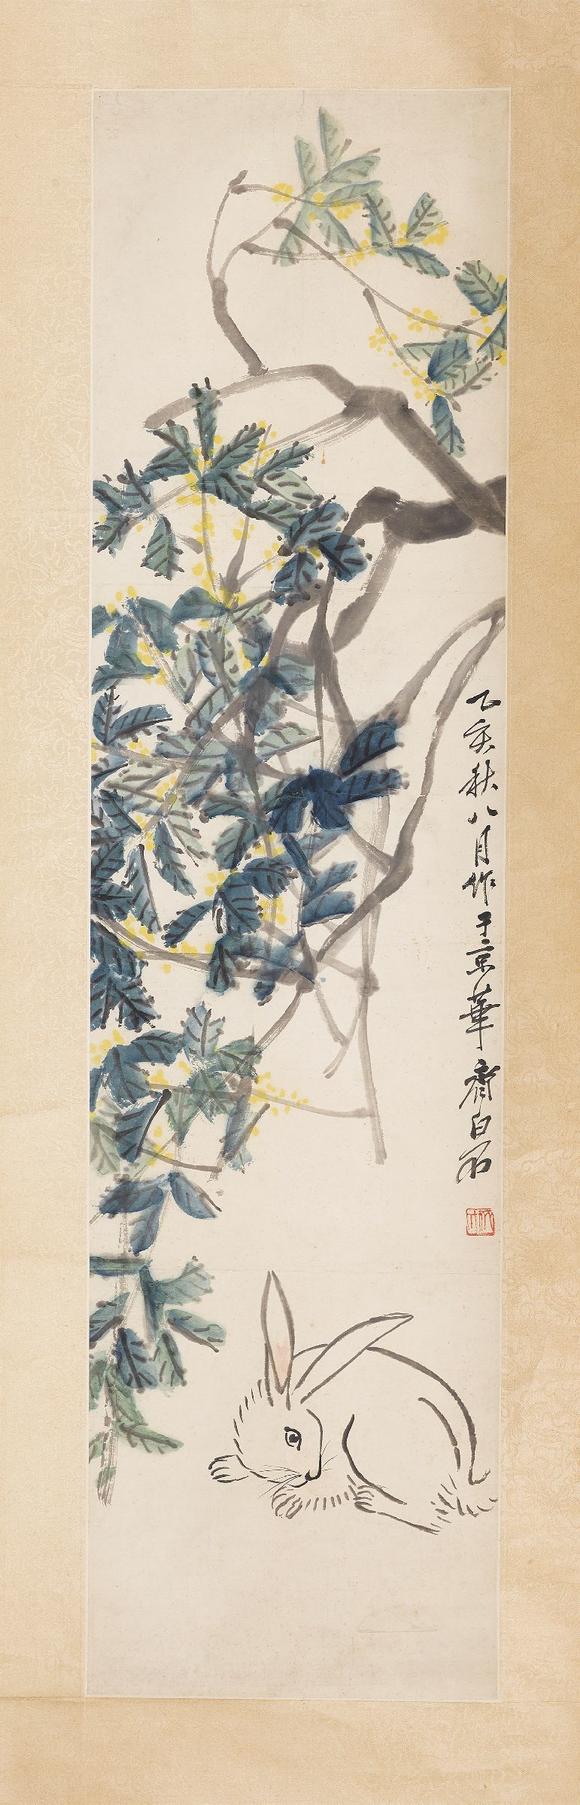 乙亥秋八月作于京華齊白石